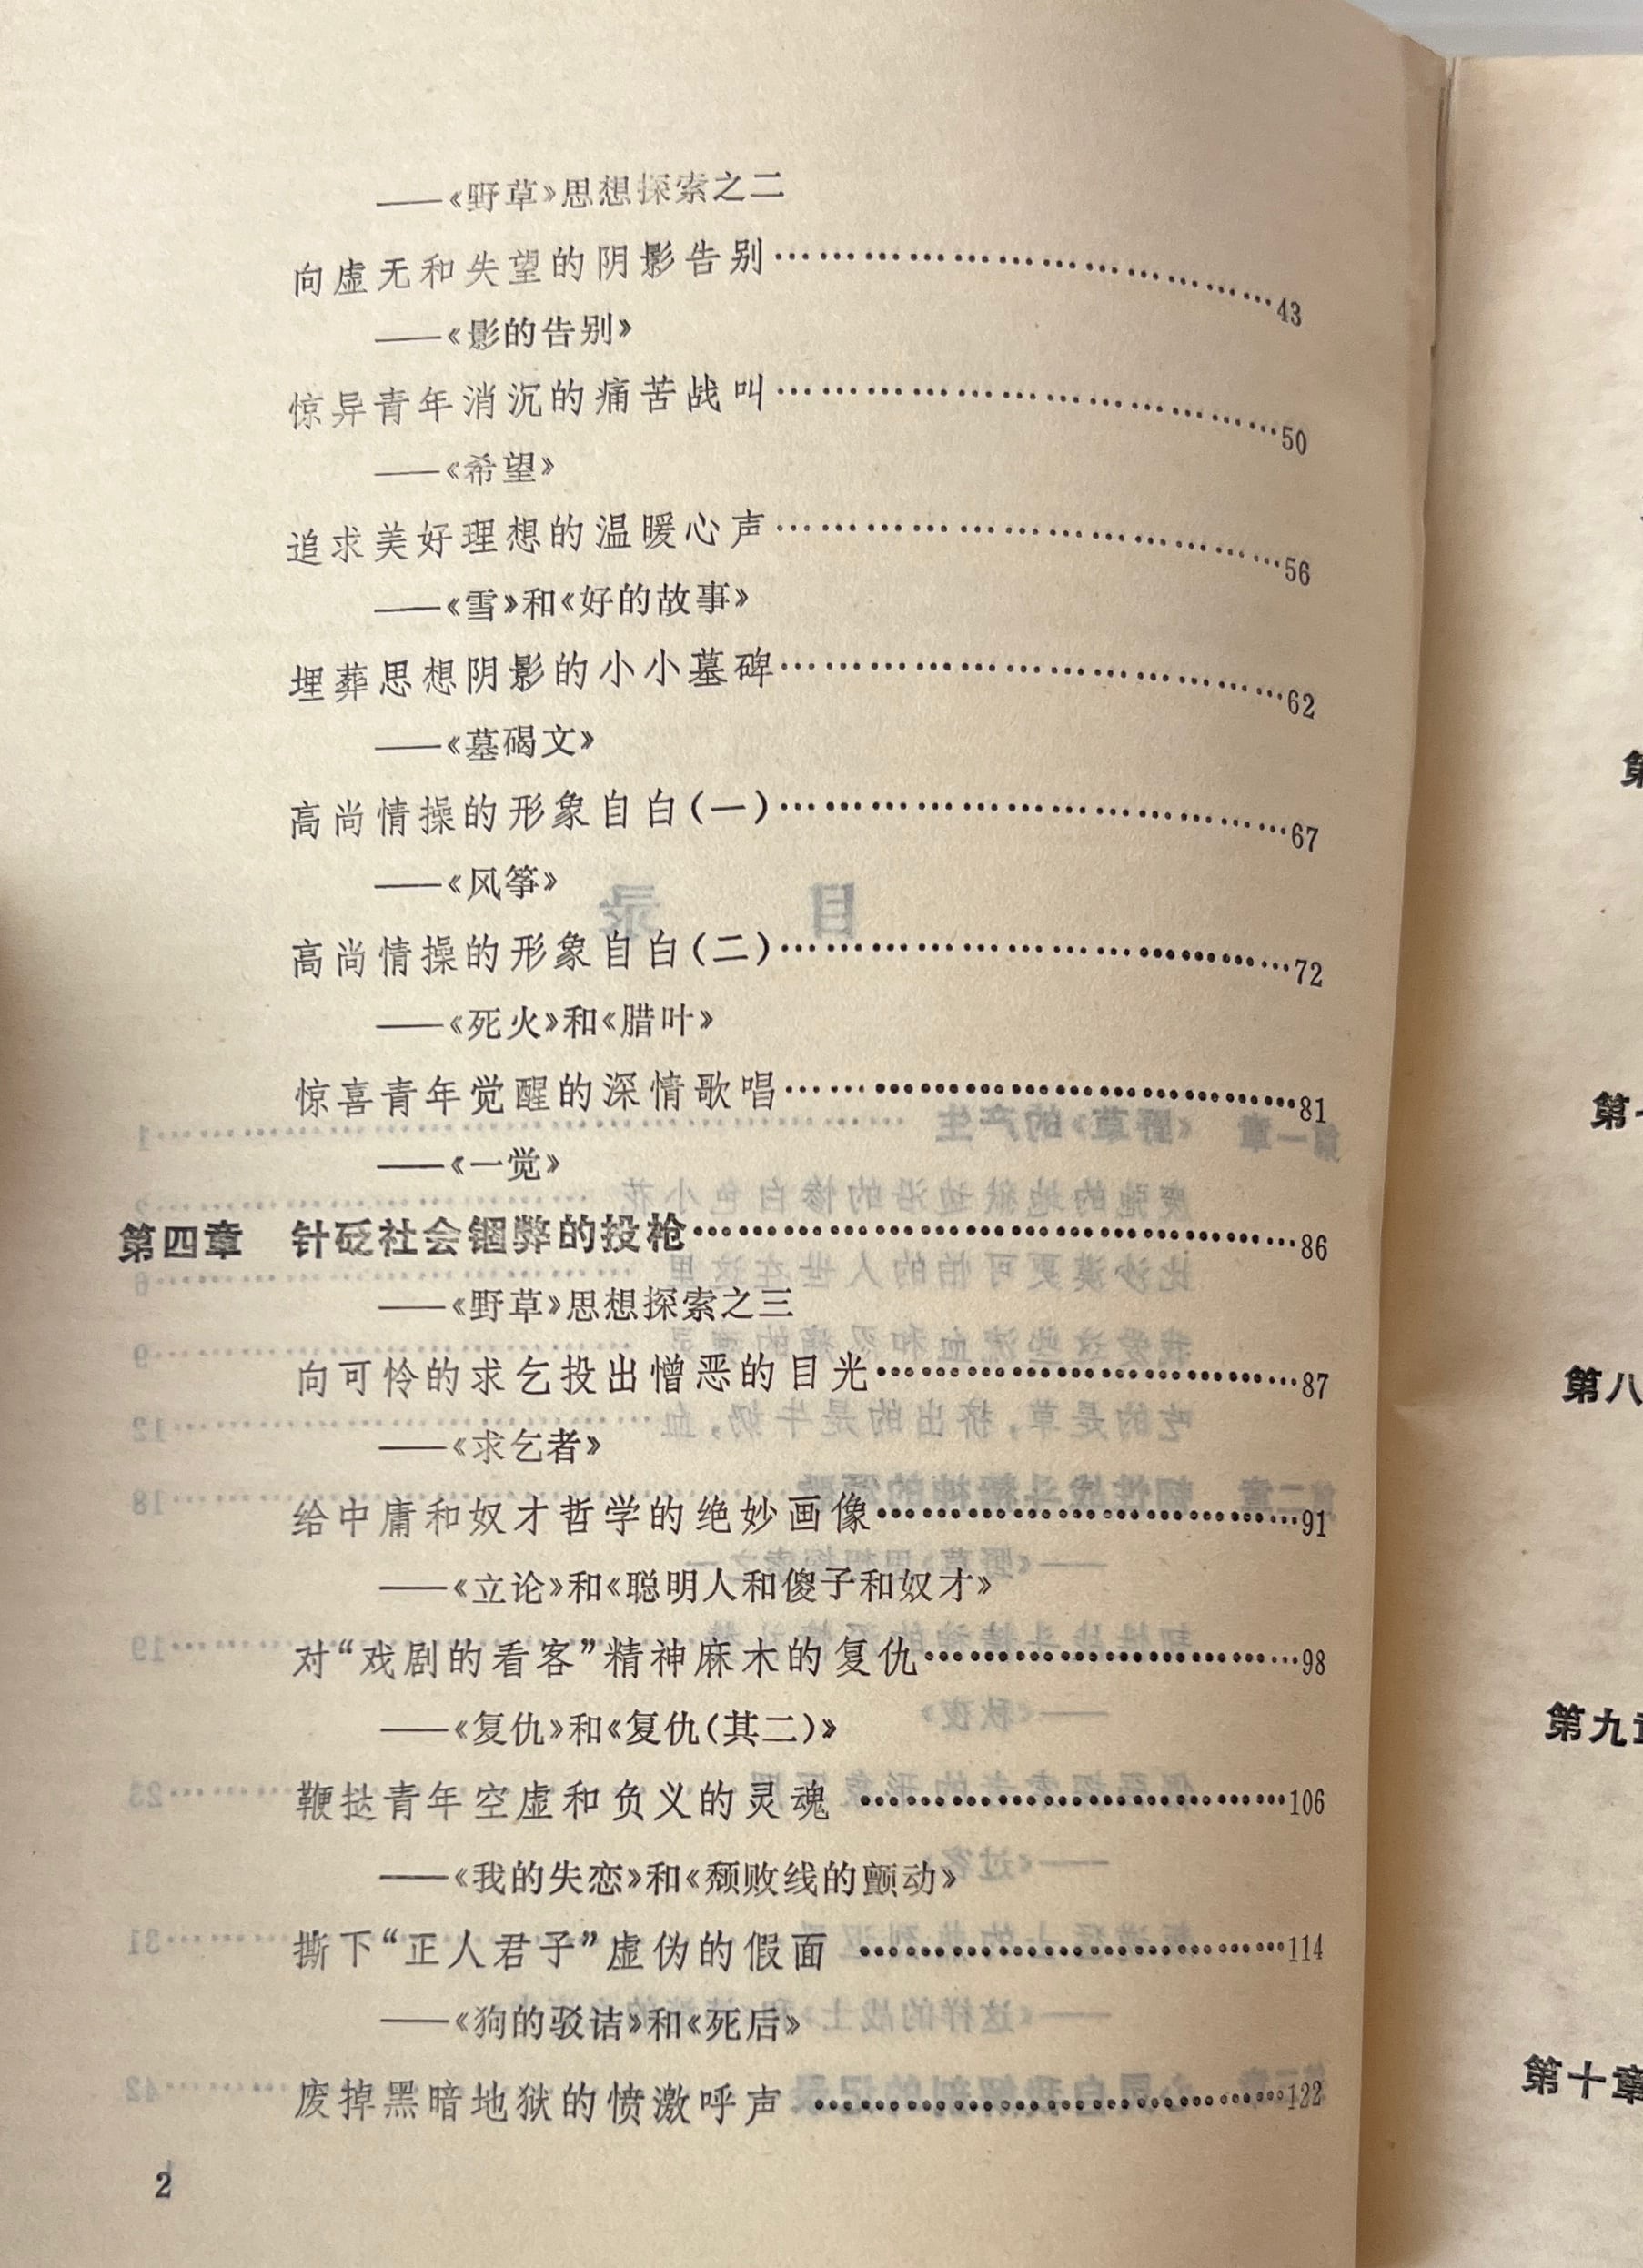 ——《野草》思想探索之二
向虚无和失望的阴影告别……………………………43
——《影的告别》
惊异青年消沉的痛苦战叫……………………………50
——《希望》
追求美好理想的温暖心声……………………………56
——《雪》和《好的故事》
埋葬思想阴影的小小墓碑……………………………62
——《墓碣文》
高尚情操的形象自白(一)……………………………67
——《风筝》
高尚情操的形象自白(二)……………………………72
——《死火》和《腊叶》
惊喜青年觉醒的深情歌唱……………………………81
——《一觉》
第四章 针砭社会锢弊的投枪……………………………86
——《野草》思想探索之三
向可怜的求乞投出憎恶的目光……………………87
——《求乞者》
给中庸和奴才哲学的绝妙画像……………………91
——《立论》和《聪明人和傻子和奴才》
对“戏剧的看客”精神麻木的复仇…………………98
——《复仇》和《复仇(其二)》
鞭挞青年空虚和负义的灵魂……………………106
——《我的失恋》和《颓败线的颤动》
撕下“正人君子”虚伪的假面……………………114
——《狗的驳诘》和《死后》
废掉黑暗地狱的愤激呼声………………………122
2
第八
第九章
第十章